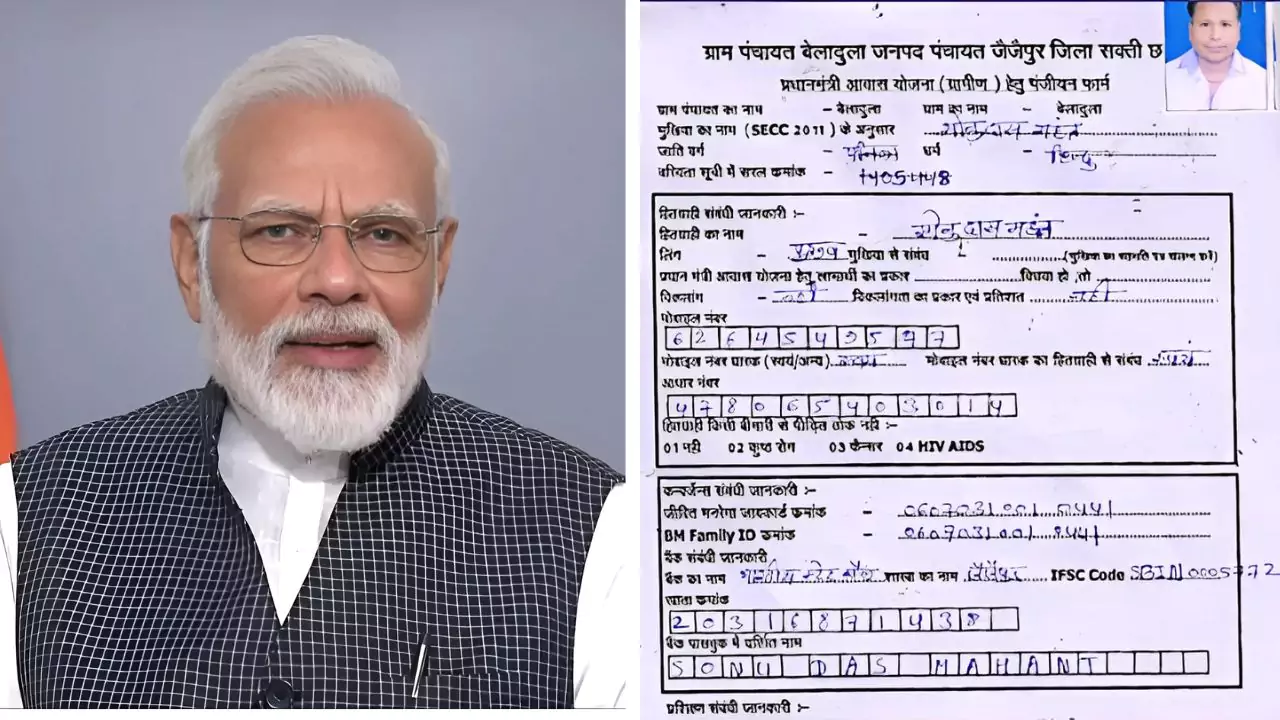 ग्राम पंचायत बेलादुला जनपद पंचायत जैजैपुर जिला सक्ती छ
प्रधानमंत्री आवास योजना (ग्रामीण) हेतु पंजीयन फार्म
ग्राम पंचायत का नाम - बेलादुला ग्राम का नाम - बेलादुला
मुखिया का नाम (SECC 2011) के अनुसार
जाति वर्ग - पनिका धर्म - हिन्दू
वरियता सूची में सरल क्रमांक -
हितग्राही संबंधी जानकारी :-
हितग्राही का नाम - सोनु दास महंत
लिंग - पुरुष मुखिया से संबंध
प्रधान मंत्री आवास योजना हेतु लाभार्थी का प्रकार विधवा हो तो
विकलांग - नहीं विकलांगता का प्रकार एवं प्रतिशत नहीं
मोबाइल नंबर
मोबाइल नंबर धारक (स्वयं/अन्य) स्वयं मोबाइल नंबर धारक का हितग्राही से संबंध स्वयं
आधार नंबर
478065403014
हितग्राही किसी बीमारी से पीड़ित तो नहीं :-
01 नहीं 02 कुष्ठ रोग 03 कैन्सर 04 HIV AIDS
कन्वर्जेन्स संबंधी जानकारी :-
जीवित मनरेगा जाबकार्ड क्रमांक -
BM Family ID क्रमांक -
बैंक संबंधी जानकारी
बैंक का नाम भारतीय स्टेट बैंक शाखा का नाम जैजैपुर IFSC Code SBIN0005772
खाता क्रमांक
20316871438
बैंक पासबुक में दर्शित नाम
SONU DAS MAHANT
प्रशिक्षण संबंधी जानकारी :-